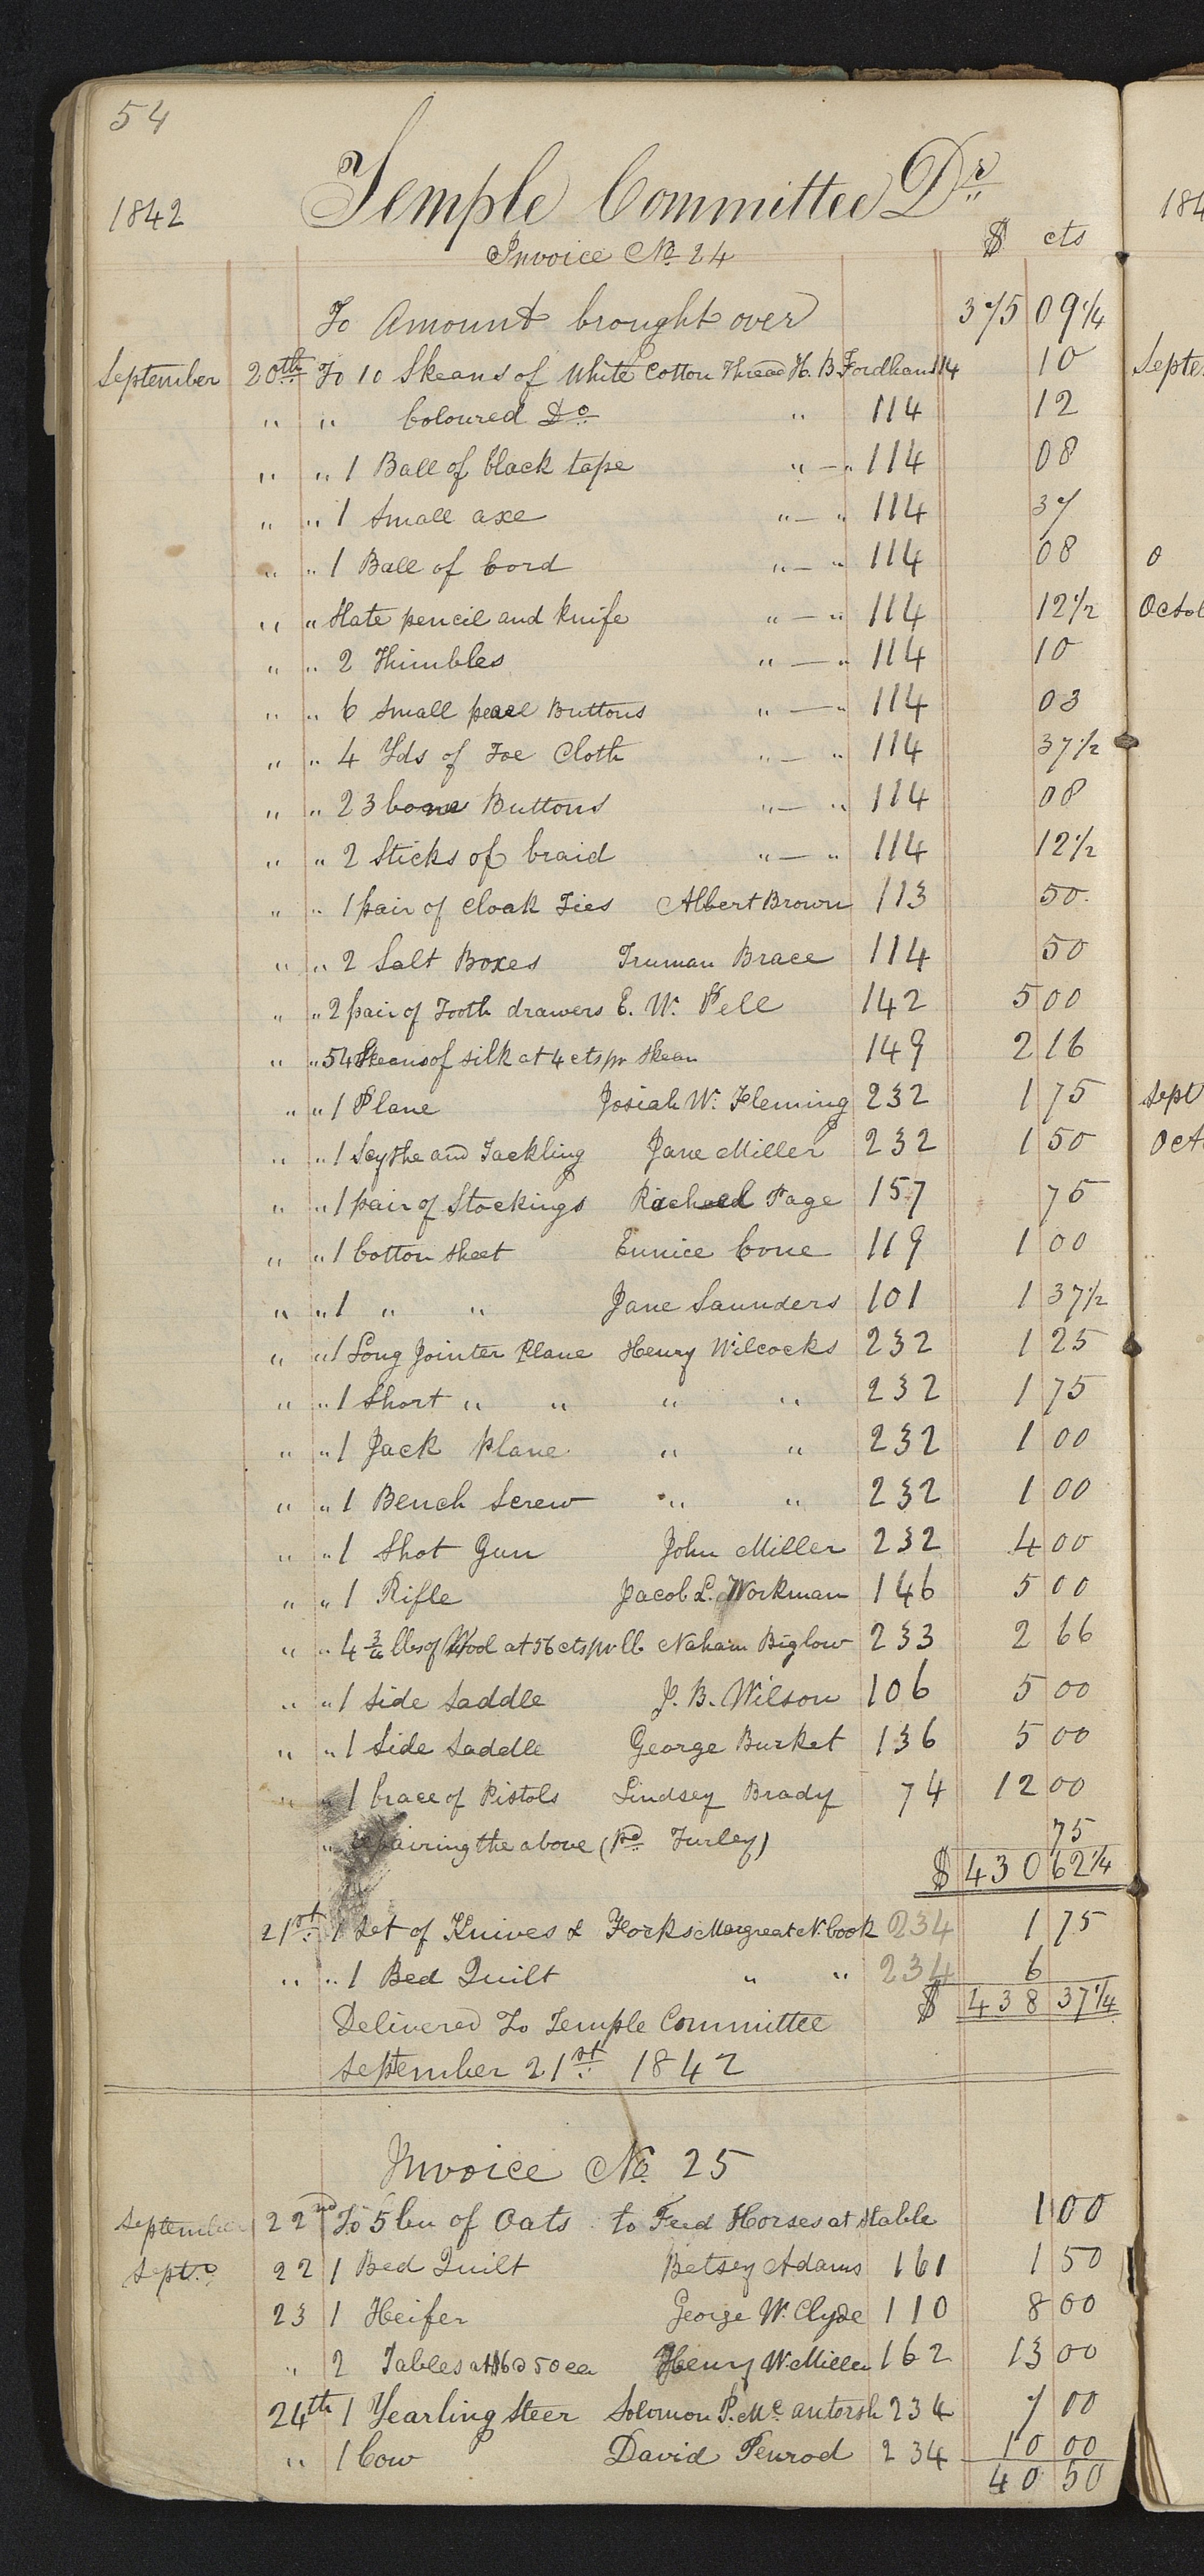 54
1842 Temple Committee Dr
$ cts
Invoice No 24
To Amount brought over 375 09 1/4
September 20th To 10 Skeans of White Cotton Thread H. B. Fordham 114 10
" " Coloured Do " 114 12
" " 1 Ball of black tape " — " 114 08
" " 1 Small axe " — " 114 37
" " 1 Ball of Cord " — " 114 08
" " Slate pencil and knife " — " 114 12 1/2
" " 2 Thimbles " — " 114 10
" " 6 Small pearl Buttons " — " 114 03
" " 4 Yds of Toe Cloth " — " 114 37 1/2
" " 23 bone Buttons " — " 114 08
" " 2 Sticks of braid " — " 114 12 1/2
" " 1 pair of Cloak Ties Albert Brown 113 50
" " 2 Salt Boxes Truman Brace 114 50
" " 2 pair of Tooth drawers E. W. Pell 142 5 00
" " 54 Skeans of silk at 4 cts pr Skean 149 2 16
" " 1 Plane Josiah W. Fleming 232 1 75
" " 1 Scythe and Tackling Jane Miller 232 1 50
" " 1 pair of Stockings Rachael Page 157 75
" " 1 Cotton Sheet Eunice Cone 119 1 00
" " 1 " " Jane Saunders 101 1 37 1/2
" " 1 Long Jointer Plane Henry Wilcocks 232 1 25
" " 1 Short " " " " 232 1 75
" " 1 Jack Plane " " 232 1 00
" " 1 Bench Screw " " 232 1 00
" " 1 Shot Gun John Miller 232 4 00
" " 1 Rifle Jacob L. Workman 146 5 00
" " 4 lbs of Wool at 56 cts pr lb Naham Biglow 233 2 66
" " 1 Side Saddle J. B. Wilson 106 5 00
" " 1 Side Saddle George Burket 136 5 00
" " 1 brace of Pistols Lindsey Brady 74 12 00
" repairing the above (Pd Turley) 75
$ 430 62 1/4
21st 1 Set of Knives & Forks Margreat N. Cook 234 1 75
" " 1 Bed Quilt " " 234 6
$ 438 37 1/4
Delivered To Temple Committee
September 21st 1842
Invoice No 25
September 22nd To 5 bu of Oats to Feed Horses at Stable 1 00
Sept. 22 1 Bed Quilt Betsey Adams 161 1 50
23 1 Heifer George W. Clyde 110 8 00
" 2 Tables at $6 50 ea Henry W. Miller 162 13 00
24th 1 Yearling Steer Solomon P. 234 7 00
" 1 Cow David Penrod 234 10 00
40 50
184
Septe
0
Octob
Sept
Oct